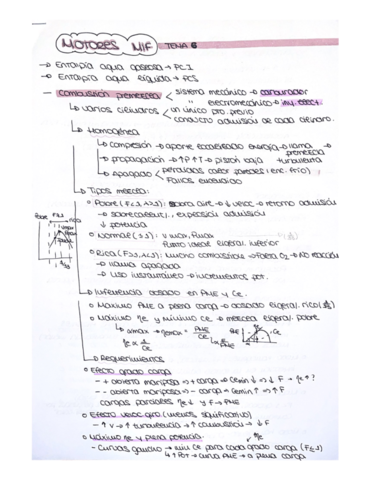 MOTORES MIF TEMA 6
→ Entalpía agua gaseosa → PCI
→ Entalpía agua líquida → PCS
— Combustión premezcla < sistema mecánico → carburador
" electromecánico → iny. elect.
↳ varios cilindros < un único pto. previo
conducto admisión de cada cilindro.
↳ Homogénea
↳ compresión → aporte energía → llama premezcla
↳ propagación → ↑P↑T → pistón baja turbulenta
↳ apagado < pérdidas calor paredes (enc. frío)
Fallos encendido
↳ Tipos mezcla:
Pobre (F<1, λ>1): sobra aire → ↓ veloc → retorno admisión
→ sobrecalent., expresión admisión
↓ potencia
Normal (≈1): v max, fmax
Punto ideal ligeral. inferior
Rica (F>1, λ<1): Mucho combustible → Falta O2 → NO reacción
→ llama apagada
→ Uso instantáneo → incrementos pot.
Pobre F≤1 rico
↳ Influencia dosado en PME y Ce.
Máximo PME a plena carga → dosado ligeral. rico
Máximo ηe y mínimo Ce → mezcla ligeral. pobre
PME
ηe
Ce
↳ Requerimientos
Efecto grado carga
- + abierta mariposa → + carga → Cemin ↓ → ↓ F → ηe↑?
- - abierta mariposa → - carga → Cemin ↑ → ↑ F
cargas parciales ηe ↓ y F → PME
Efecto veloc. giro (menos significativo)
- ↑ v → ↑ turbulencia → ↑ combustión → ↓ F
Máximo ηe y plena potencia.
- Curvas gancho → min Ce para cada grado carga (F≤1)
↳ ↑ Pot → curva PME → a plena carga